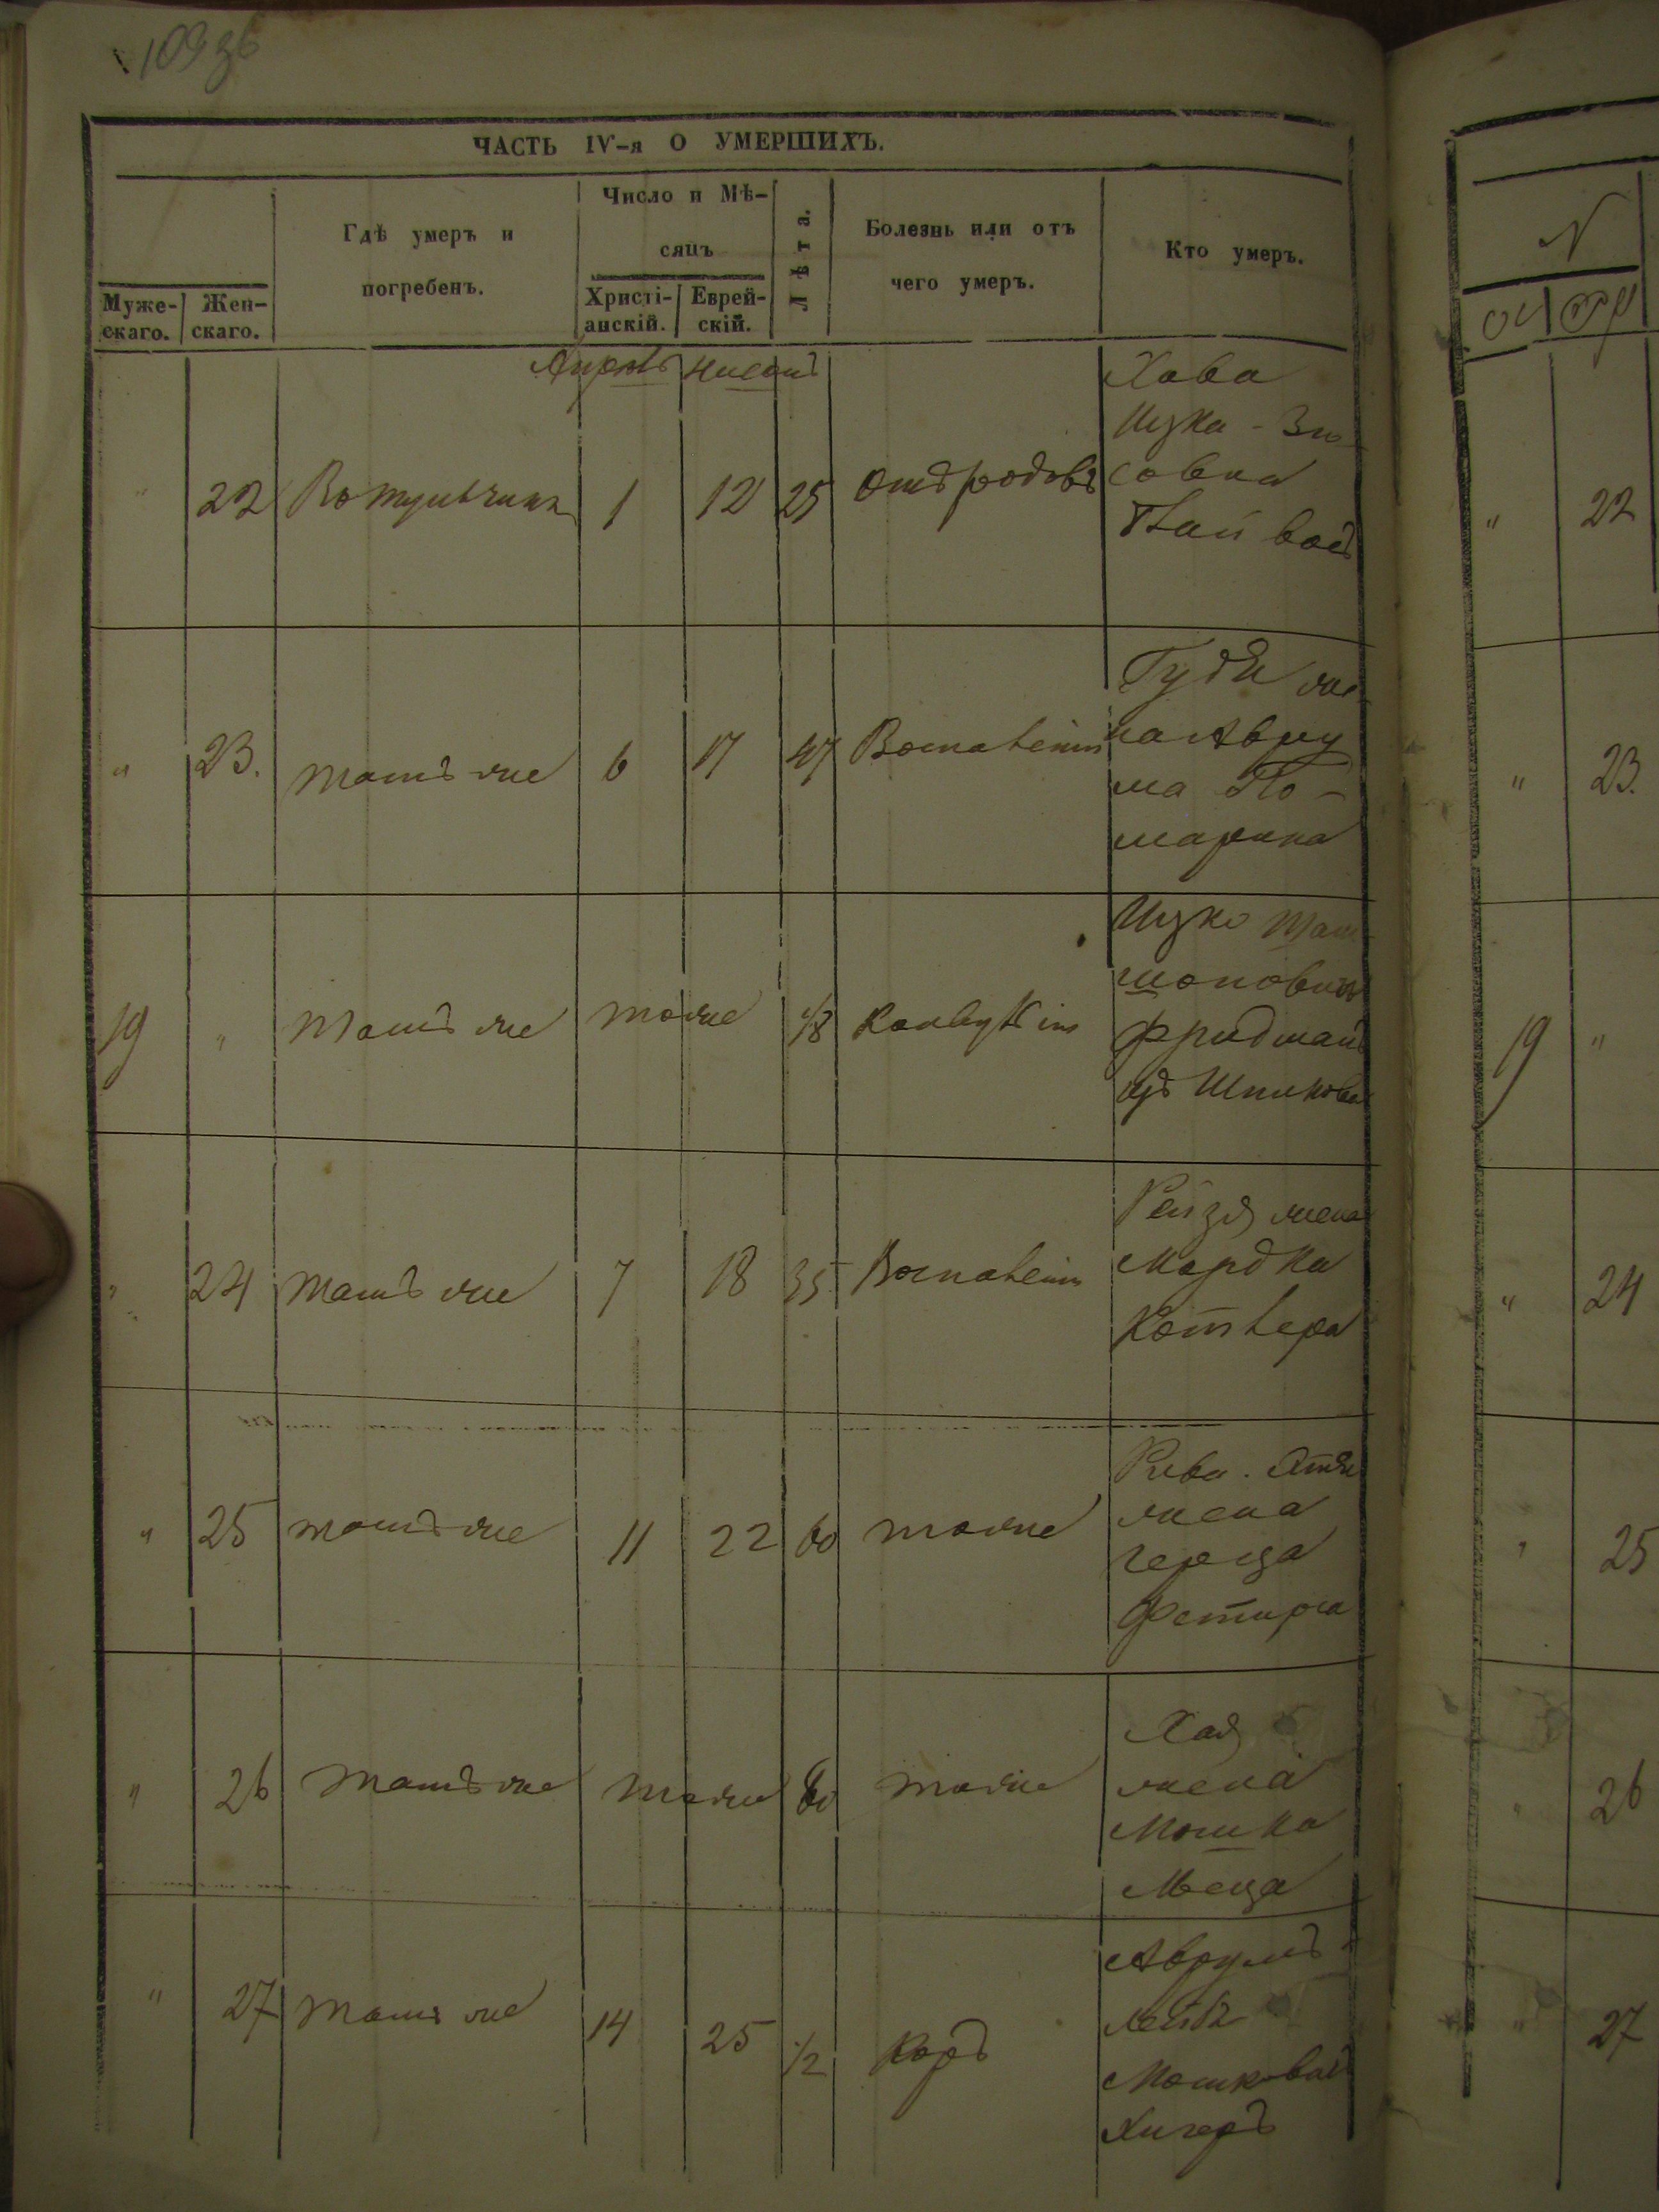 109 зв
ЧАСТЬ IV-я О УМЕРШИХЪ.
Муже-
скаго.
Жен-
скаго.
Гдѣ умеръ и
погребенъ.
Число и Мѣ-
сяцъ
Христі-
анскій.
Еврей-
скій.
Лѣта.
Болезнь или отъ
чего умеръ.
Кто умеръ.
Апрель Нисанъ
" 22 Вотульчине 1 12 25 Отъ родовъ
Хава
Ицка - Зю
совна
вось
" 23. Тамъ же 6 17 47 Воспаленія
Гудя же
на Авру
ма По-
марина
19 " Тамъ же тоже 1/8 Конвульсіи
Ицко
шоновичъ
Фридманъ
изъ Шпикова
" 24 Тамъ же 7 18 35 Воспаленія
Рейзя жена
Мордка
Котляра
" 25 тамъ же 11 22 60 тоже
Рива
жена
Герца
" 26 тамъ же тоже 60 тоже
Хая
жена
Мошка
" 27 тамъ же 14 25 1/2 Корь
Аврумъ
Лейба
Мошковъ
Хигеръ
" 22
" 23.
19 "
" 24
" 25
" 26
" 27